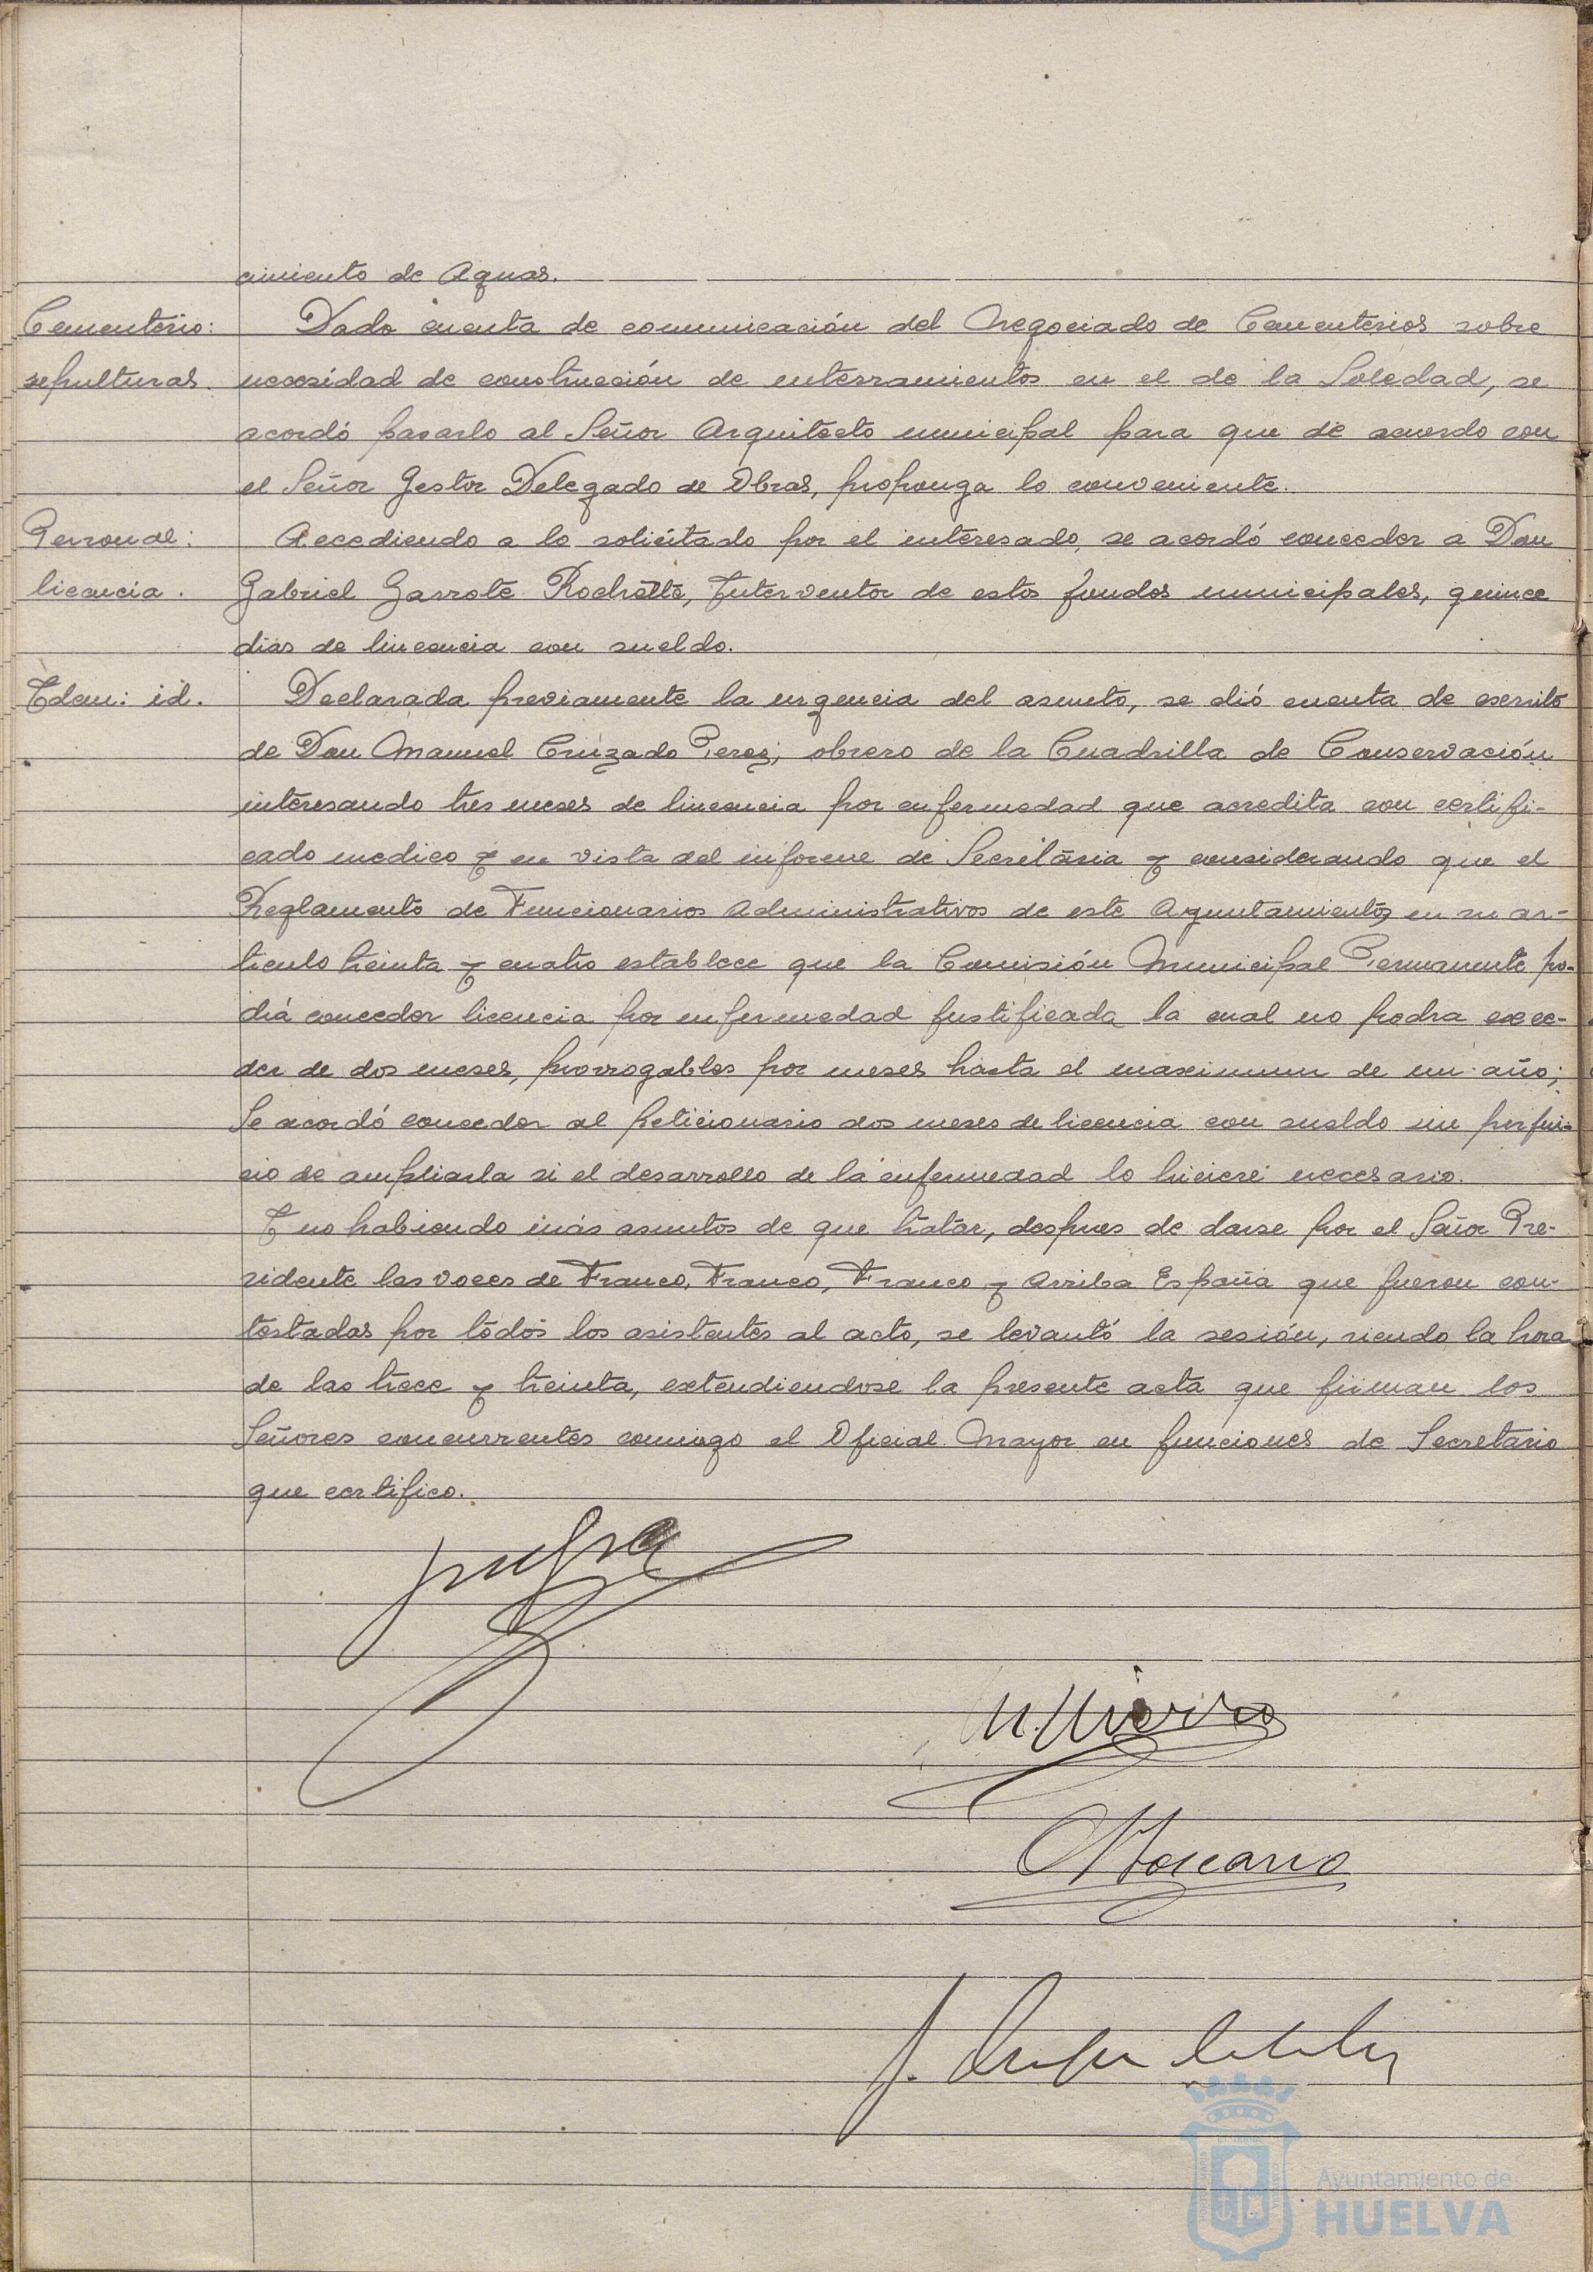 cimiento de Aguas.
Cementerio: Dada cuenta de comunicación del Negociado de Cementerios sobre
sepulturas. necesidad de construcción de enterramientos en el de la Soledad, se
acordó pasarlo al Señor Arquitecto municipal para que de acuerdo con
el Señor Gestor Delegado de Obras, proponga lo conveniente.
Personal: Accediendo a lo solicitado por el interesado, se acordó conceder a Don
licencia. Gabriel Garrote Rochette, Interventor de estos fondos municipales, quince
dias de lincencia con sueldo.
Idem: id. Declarada previamente la urgencia del asunto, se dió cuenta de escrito
de Don Manuel Cruzado Perez, obrero de la Cuadrilla de Conservación
interesando tres meses de lincencia por enfermedad que acredita con certifi-
cado medico y en vista del informe de Secretaria y considerando que el
Reglamento de Funcionarios Administrativos de este Ayuntamiento, en su ar-
ticulo treinta y cuatro establece que la Comisión Municipal Permanente po-
drá conceder licencia por enfermedad justificada la cual no podra exce-
der de dos meses, prorrogables por meses hasta el maximum de un año;
Se acordó conceder al peticionario dos meses de licencia con sueldo sin perjui-
cio de ampliarla si el desarrollo de la enfermedad lo hiciere necesario.
Y no habiendo más asuntos de que tratar, despues de darse por el Señor Pre-
sidente las voces de Franco, Franco, Franco y Arriba España que fueron con-
testadas por todos los asistentes al acto, se levantó la sesión, siendo la hora
de las trece y treinta, extendiendose la presente acta que firman los
Señores concurrentes conmigo el Oficial Mayor en funciones de Secretario
que certifico.
Toscano
Ayuntamiento de
HUELVA